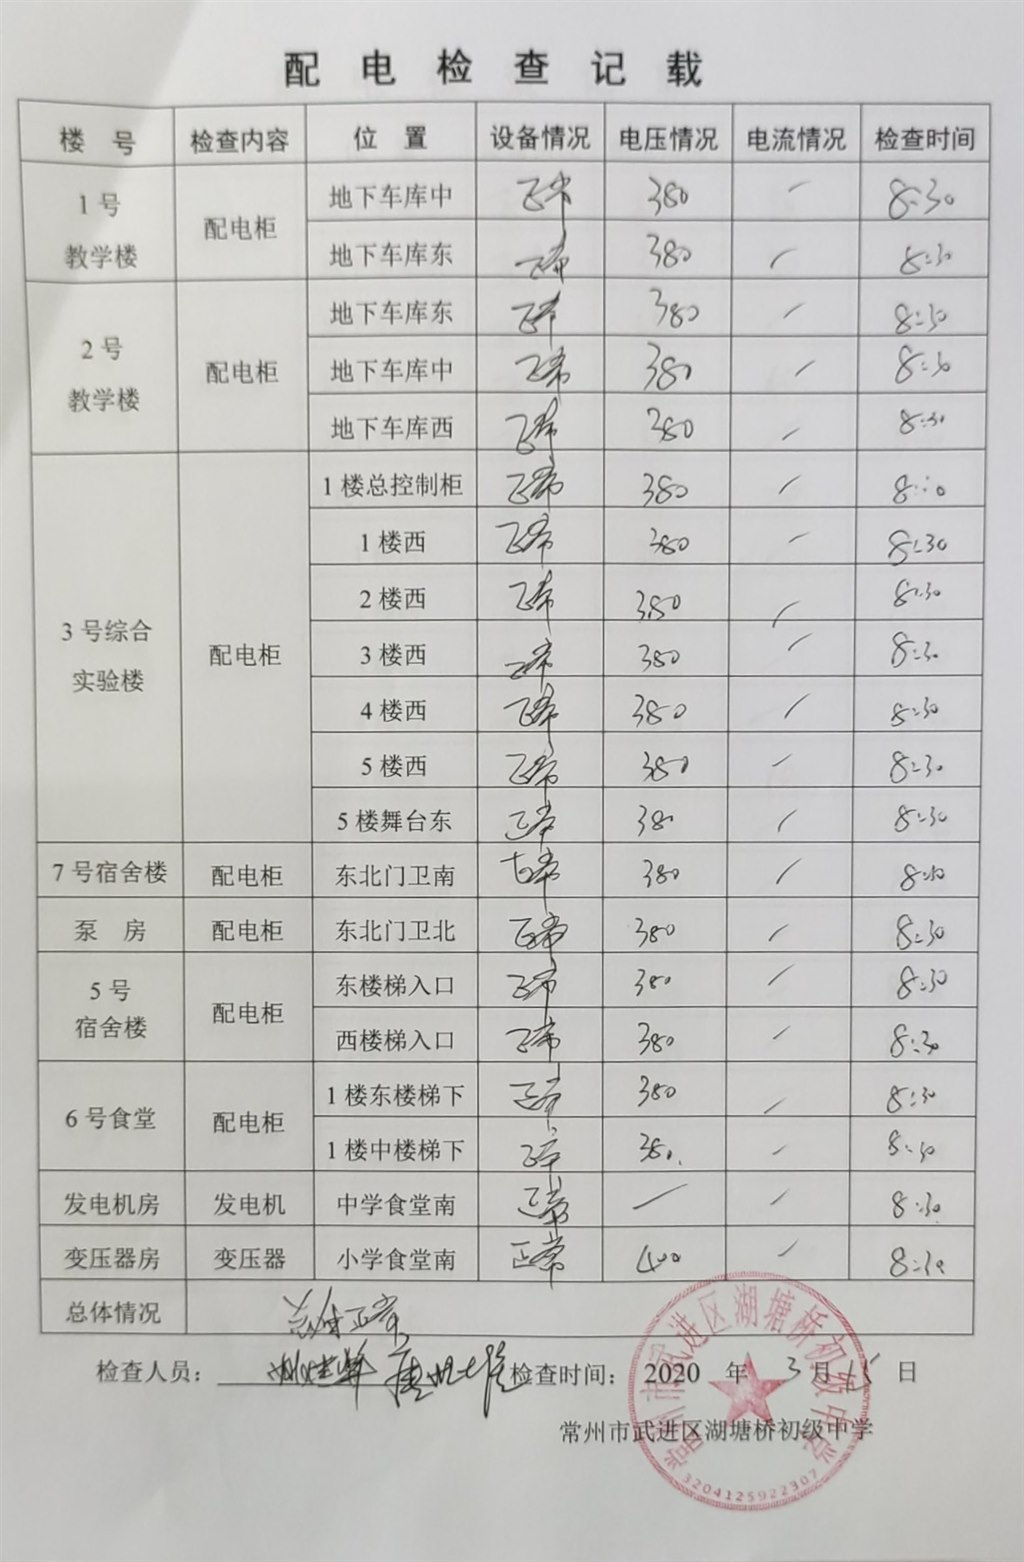 配电检查记载
楼号 检查内容 位置 设备情况 电压情况 电流情况 检查时间
1号教学楼 配电柜 地下车库中 正常 380 / 8:30
地下车库东 正常 380 / 8:30
2号教学楼 配电柜 地下车库东 正常 380 / 8:30
地下车库中 正常 380 / 8:30
地下车库西 正常 380 / 8:30
3号综合实验楼 配电柜 1楼总控制柜 正常 380 /
1楼西 正常 380 / 8:30
2楼西 正常 380 / 8:30
3楼西 正常 380 / 8:30
4楼西 正常 380 / 8:30
5楼西 正常 380 / 8:30
5楼舞台东 正常 380 / 8:30
7号宿舍楼 配电柜 东北门卫南 正常 380 / 8:30
泵房 配电柜 东北门卫北 正常 380 / 8:30
5号宿舍楼 配电柜 东楼梯入口 正常 380 / 8:30
西楼梯入口 正常 380 / 8:30
6号食堂 配电柜 1楼东楼梯下 正常 380 / 8:30
1楼中楼梯下 正常 380 / 8:30
发电机房 发电机 中学食堂南 正常 / / 8:30
变压器房 变压器 小学食堂南 正常 400 / 8:30
总体情况 总体正常
检查人员： 检查时间： 2020 年 3 月 15 日
常州市武进区湖塘桥初级中学
常州市武进区湖塘桥初级中学
3204125922307